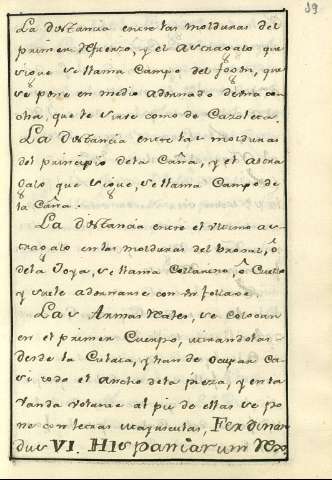 59
La distancia entre las molduras del
primer refuerzo, y el astragalo que
sigue se llama Campo del fogon, que
se pone en medio adornado de una con
cha, que le sirve como de Cazoleta.
La distancia entre las molduras
del principio dela Caña, y el astra
galo que sigue, se llama Campo de
la Caña.
La distancia entre el ultimo as-
tragalo, en las molduras del brocal, ô
dela Joya, se llama Collarino, ô Cuello
y suele adornarse con un follage.
Las Armas reales, se colocan
en el primer Cuerpo, mirandolas
desde la Culata, y han de ocupar ca
si todo el ancho dela pieza, y en la
vanda volante al pie de ellas se po
ne con letras mayusculas, Ferdinan
dus VI. Hispaniarum Rex